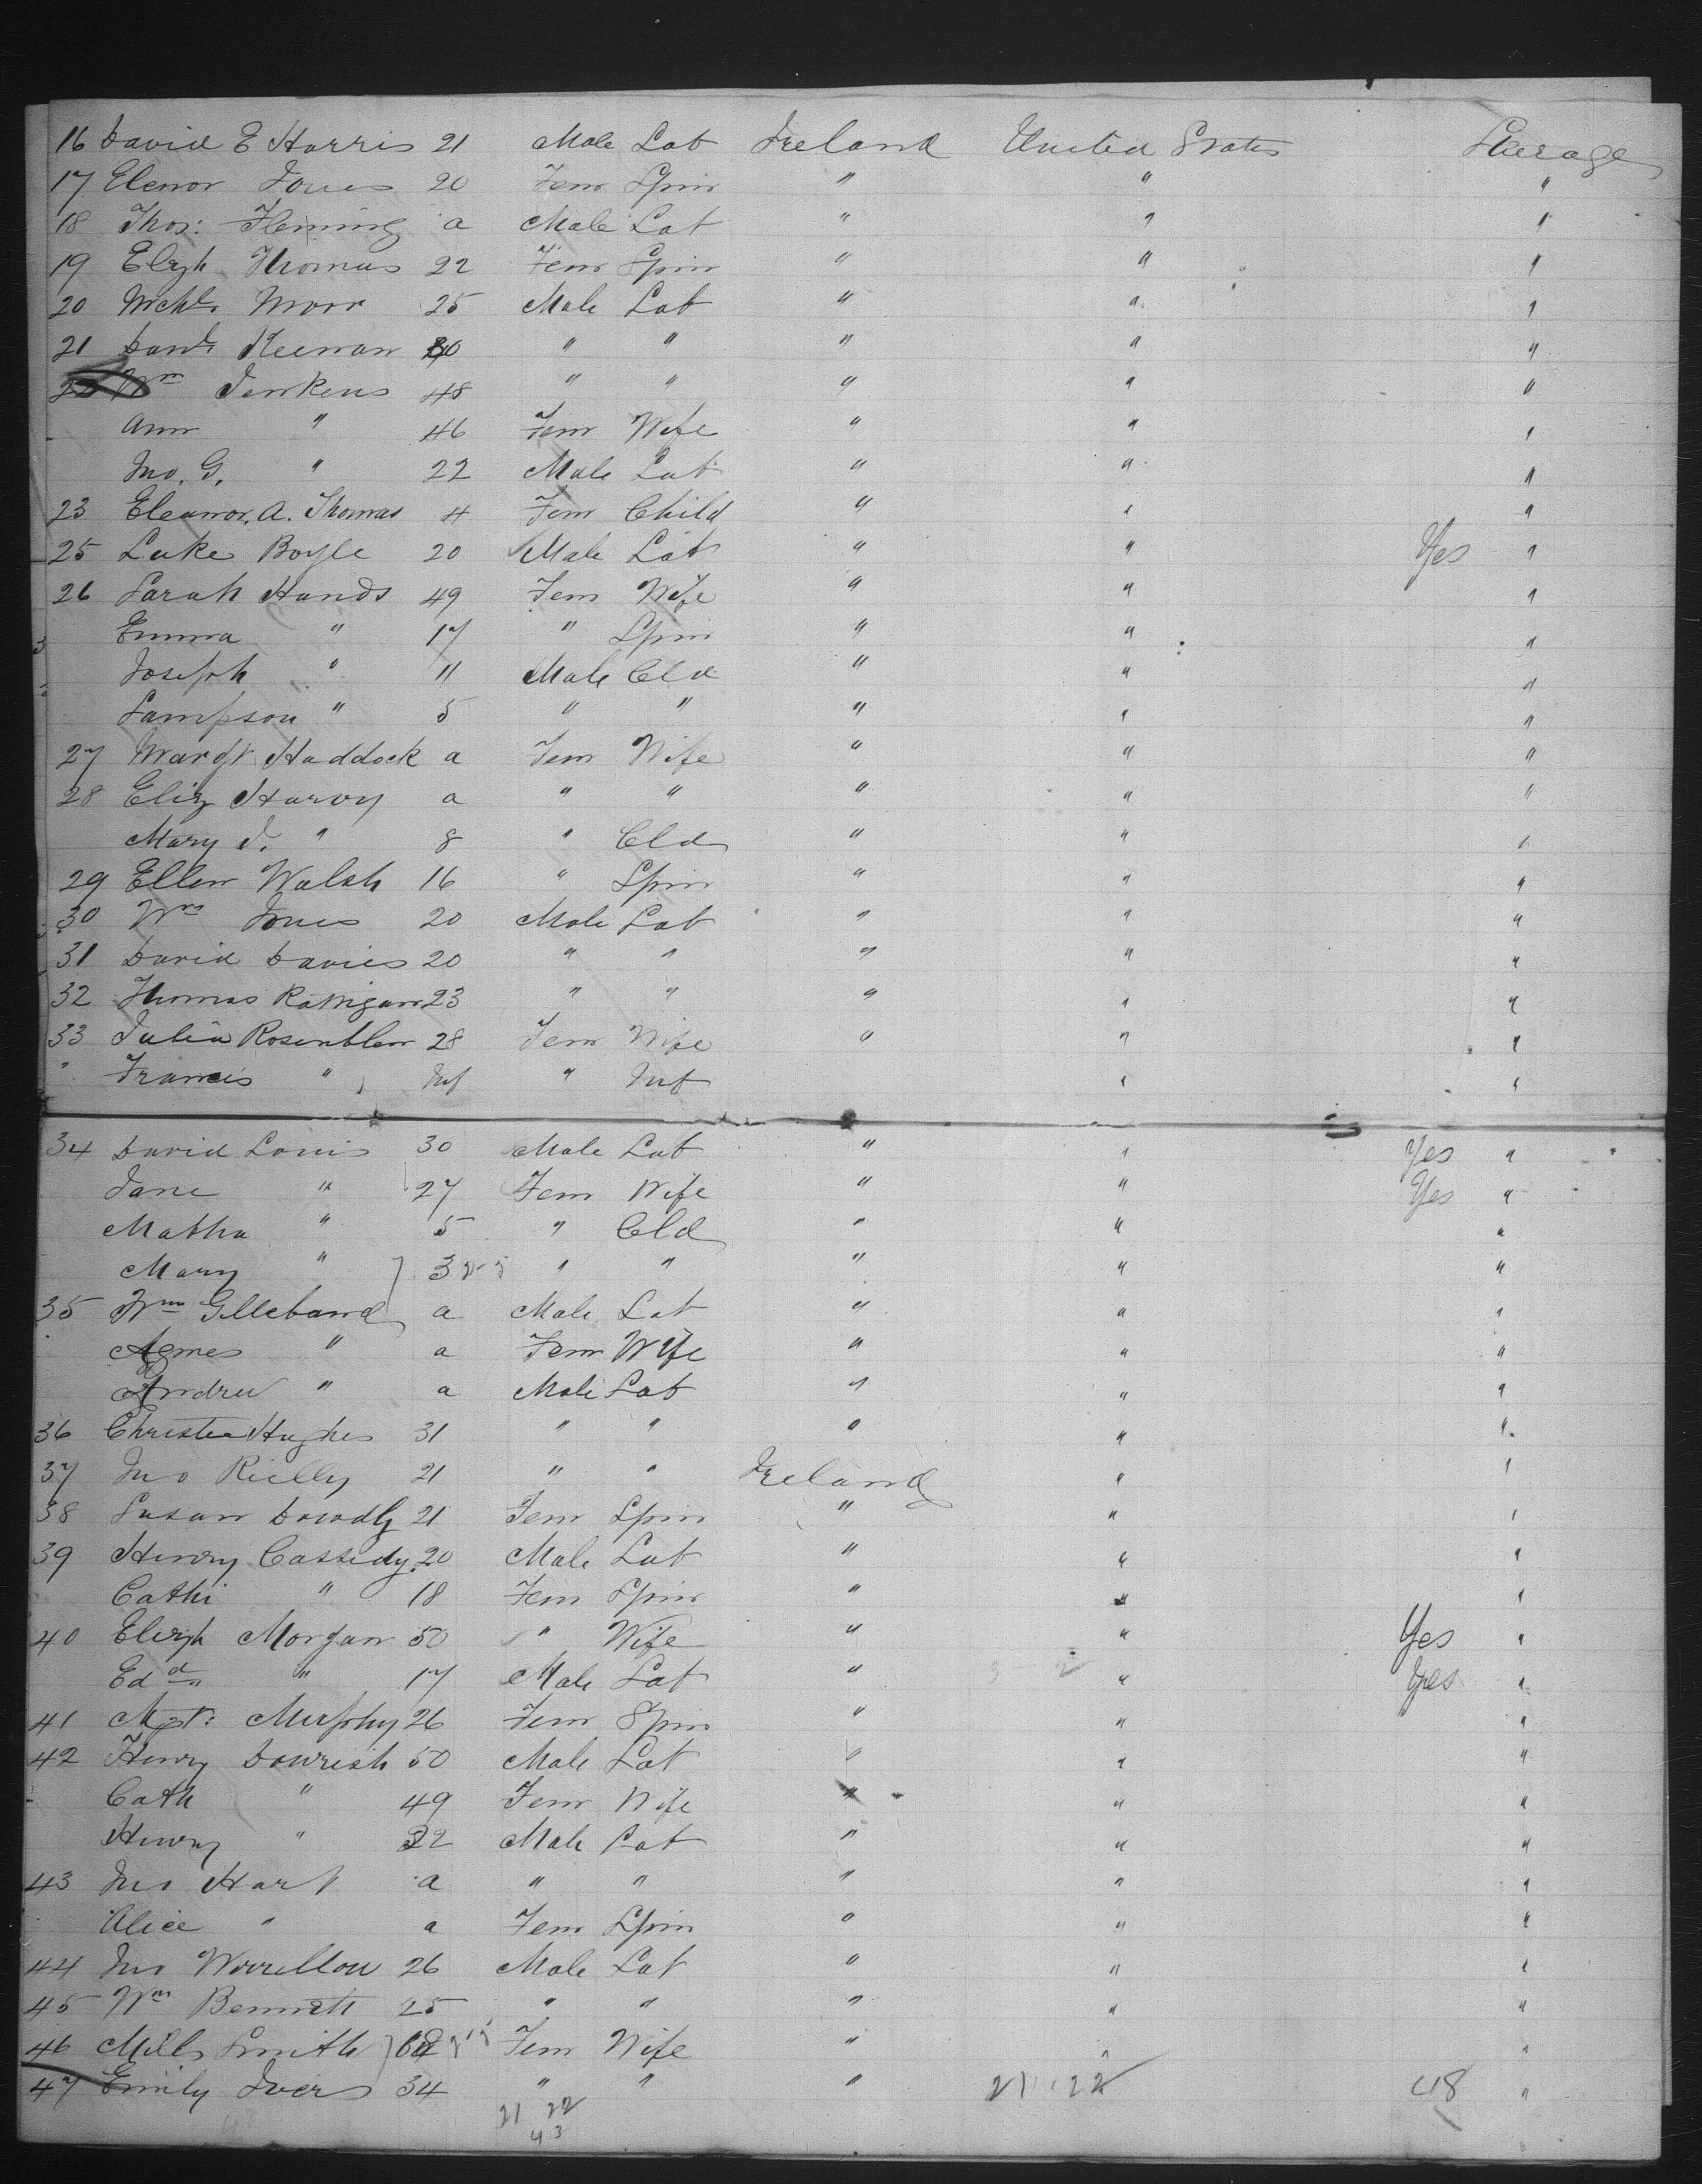 16 David E Harris 21 Male Lab Ireland United States Steerage
17 Elenor Jones 20 Fem Spin " " "
18 Thos: Fleming a Male Lab " " "
19 Elizh Thomas 22 Fem Spin " " "
20 Michl. Morr 25 Male Lab " " "
21 Danl. Keenan " " " " "
22 Wm Jenkens 48 " " " " "
Ann " 46 Fem Wife " " "
Jno. G. " 22 Male Lab " " "
23 Eleanor. A. Thomas 4 Fem Child " " "
25 Luke Boyle 20 Male Lab " " Yes "
26 Sarah Hands 49 Fem Wife " " "
Emma " 17 " Spin " " "
Joseph " 11 Male Cld " " "
Sampson " 5 " " " " "
27 Margt Haddock a Fem Wife " " "
28 Eliz Harvy a " " " " "
Mary J. " 8 " Cld " " "
29 Ellen Walsh 16 " Spin " " "
30 Wm Jones 20 Male Lab " " "
31 David Davies 20 " " " " "
32 Thomas Rattigan 23 " " " " "
33 Julia Rosenblen 28 Fem Wife " " "
" Francis " Inf " Inf " "
34 David Louis 30 Male Lab " " Yes "
Jane " 27 Fem Wife " " Yes "
Matha " 5 " Cld " " "
Mary " 3 " " " " "
35 Wm Gilleband a Male Lab " " "
Agnes " a Fem Wife " " "
Andrew " a Male Lab " " "
36 Christen Hughes 31 " " " " "
37 Jno Rielly 21 " " Ireland " "
38 Susan Dowdly 21 Fem Spin " " "
39 Henry Cassedy 20 Male Lab " " "
Cathi " 18 Fem Spin " " "
40 Elizh Morgan 50 " Wife " " Yes "
Edd " 17 Male Lab " " Yes "
41 Mgt: Murphy 26 Fem Spin " " "
42 Henry Dowrish 50 Male Lab " " "
Cath " 49 Fem Wife " " "
Henry " 22 Male Lab " " "
43 Jno Hart a " " " " "
Alice " a Fem Spin " " "
44 Jno Worrellow 26 Male Lab " " "
45 Wm Bennett 25 " " " " "
46 Mills Smith Fem Wife " " "
47 Emily Iver 34 " " " 21 22 48 "
21 22
43